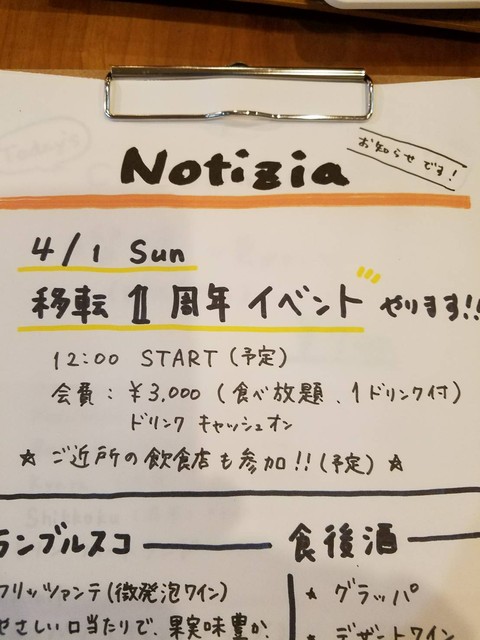 Notizia
お知らせです!
4/1 Sun
移転1周年イベントやります!!
12:00 START (予定)
会費:¥3,000 (食べ放題、1ドリンク付)
ドリンク キャッシュオン
☆ ご近所の飲食店も参加!!(予定) ☆
ランブルスコ
フリッツァンテ(微発泡ワイン)
やさしい口当たりで、果実味豊か
食後酒
★ グラッパ
★ デザートワイン